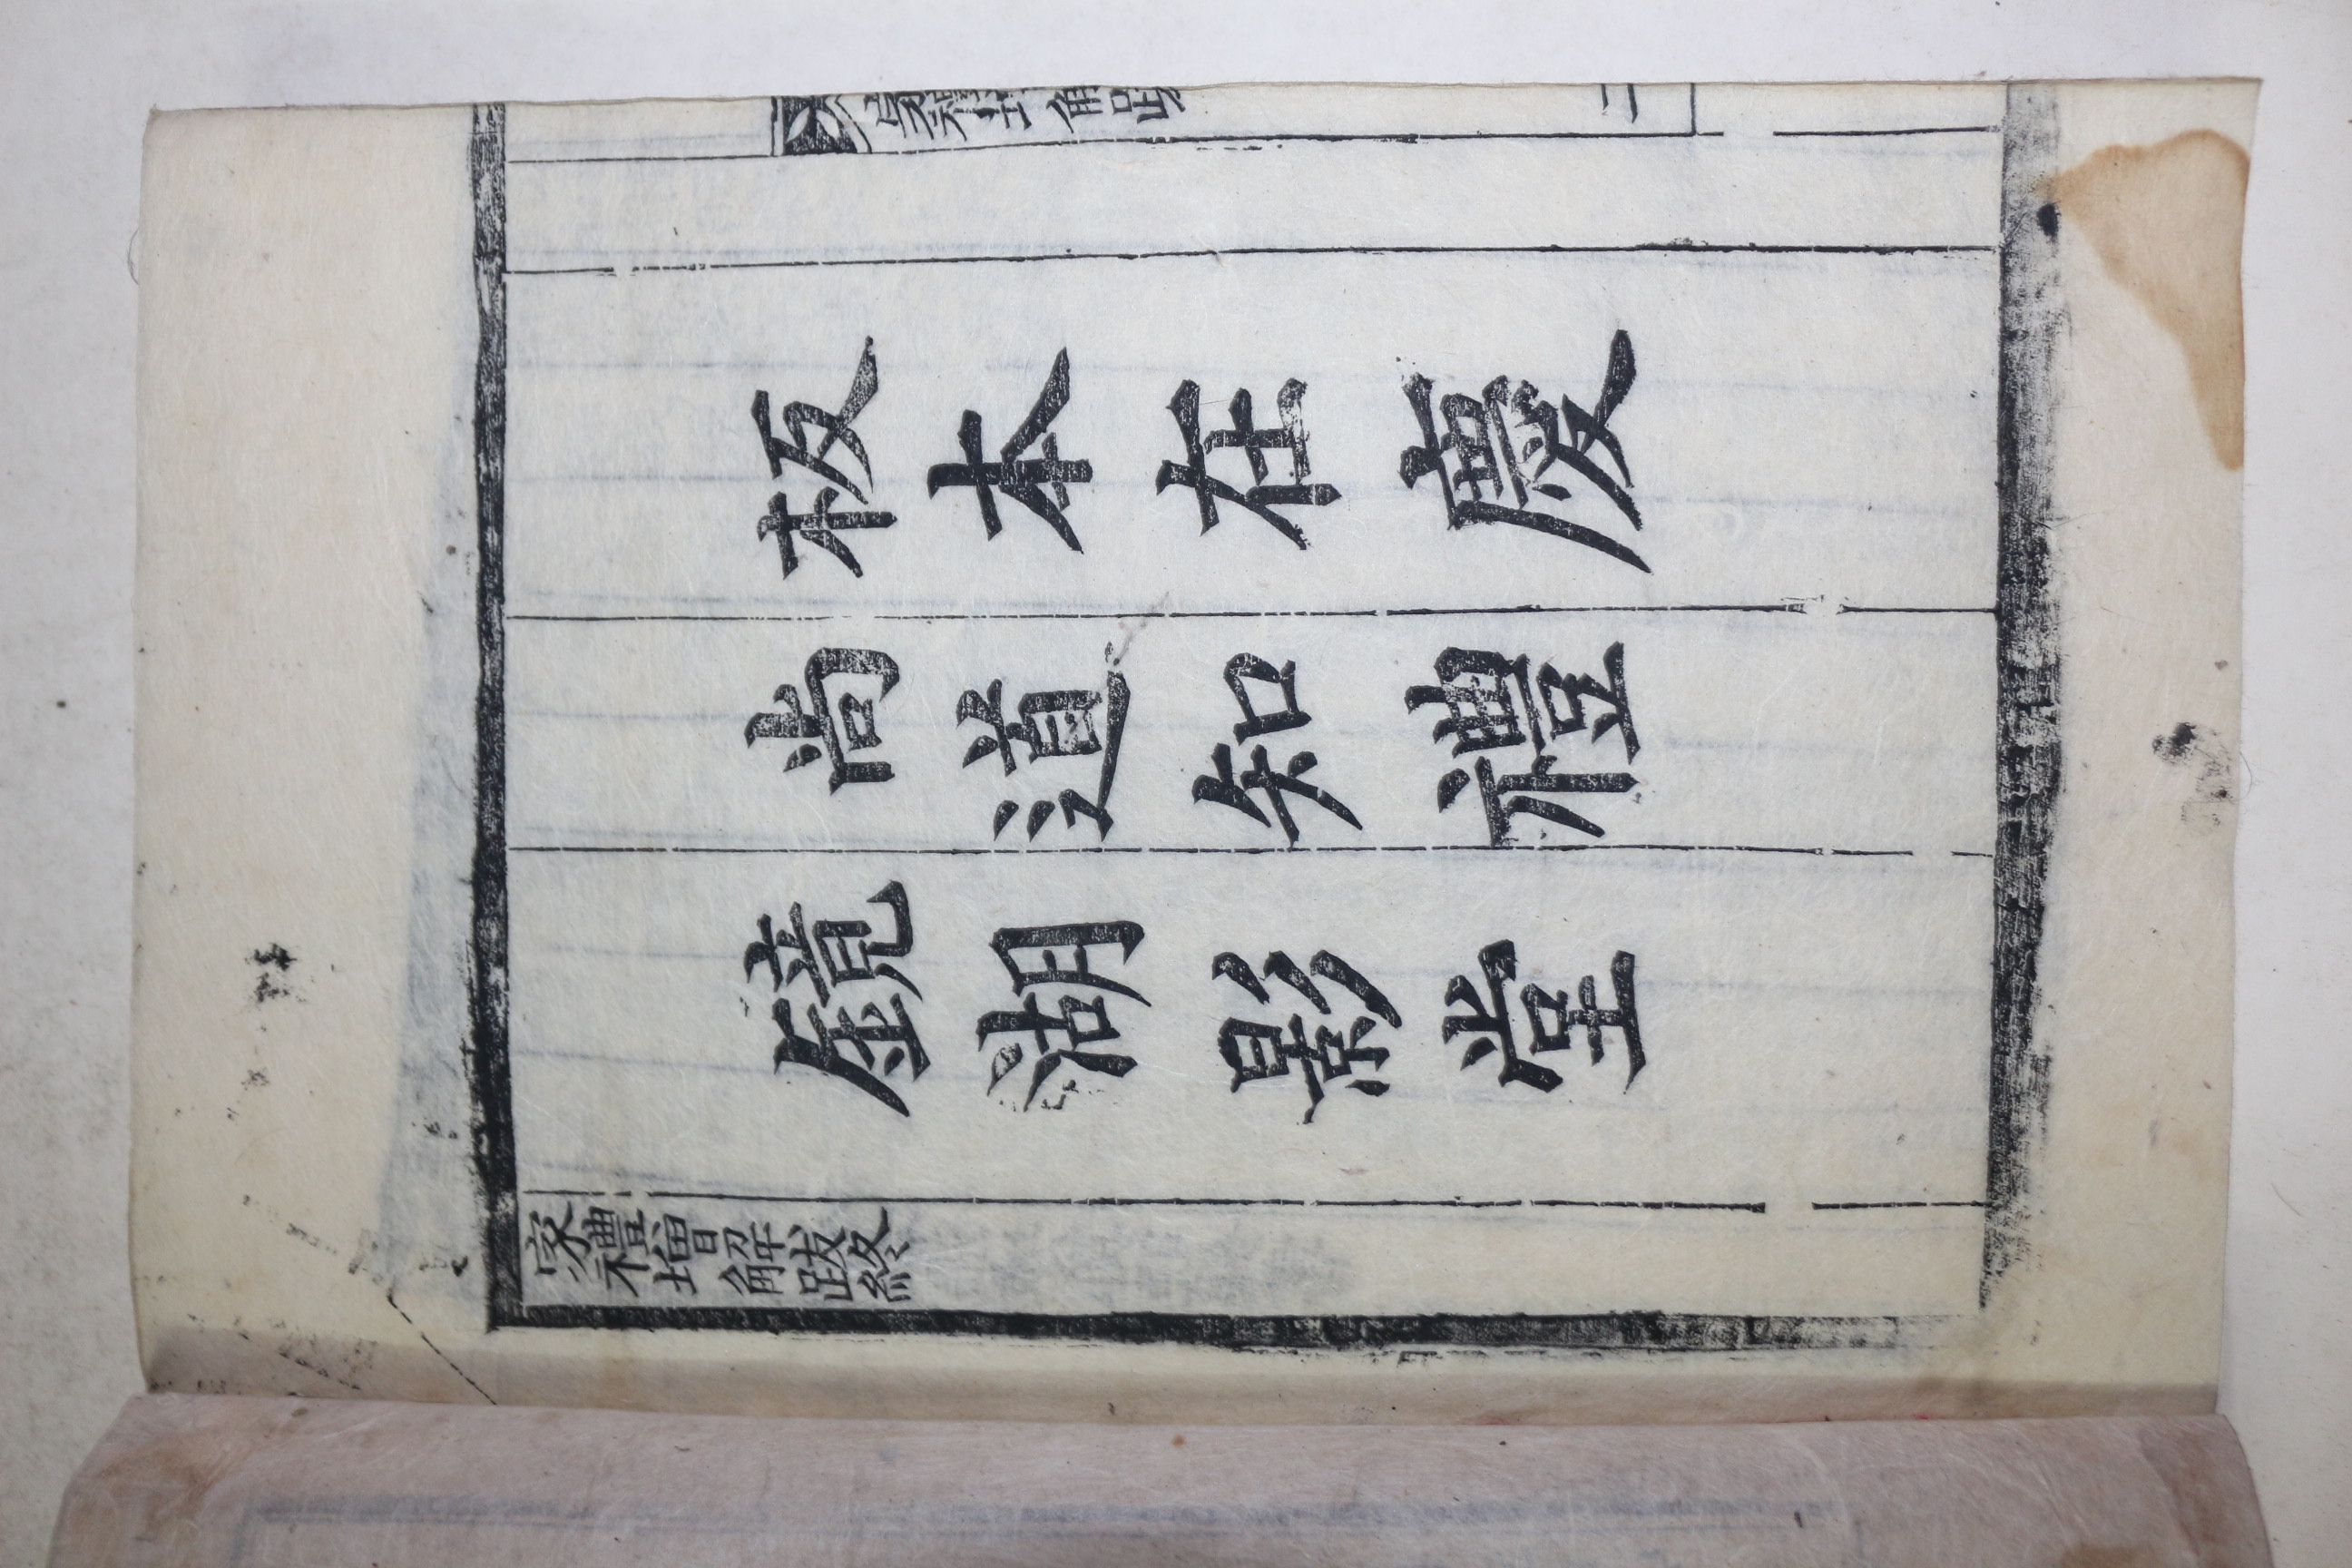 家禮增解跋
二
板本在慶
尚道知禮
鏡湖影堂
家禮增解跋終